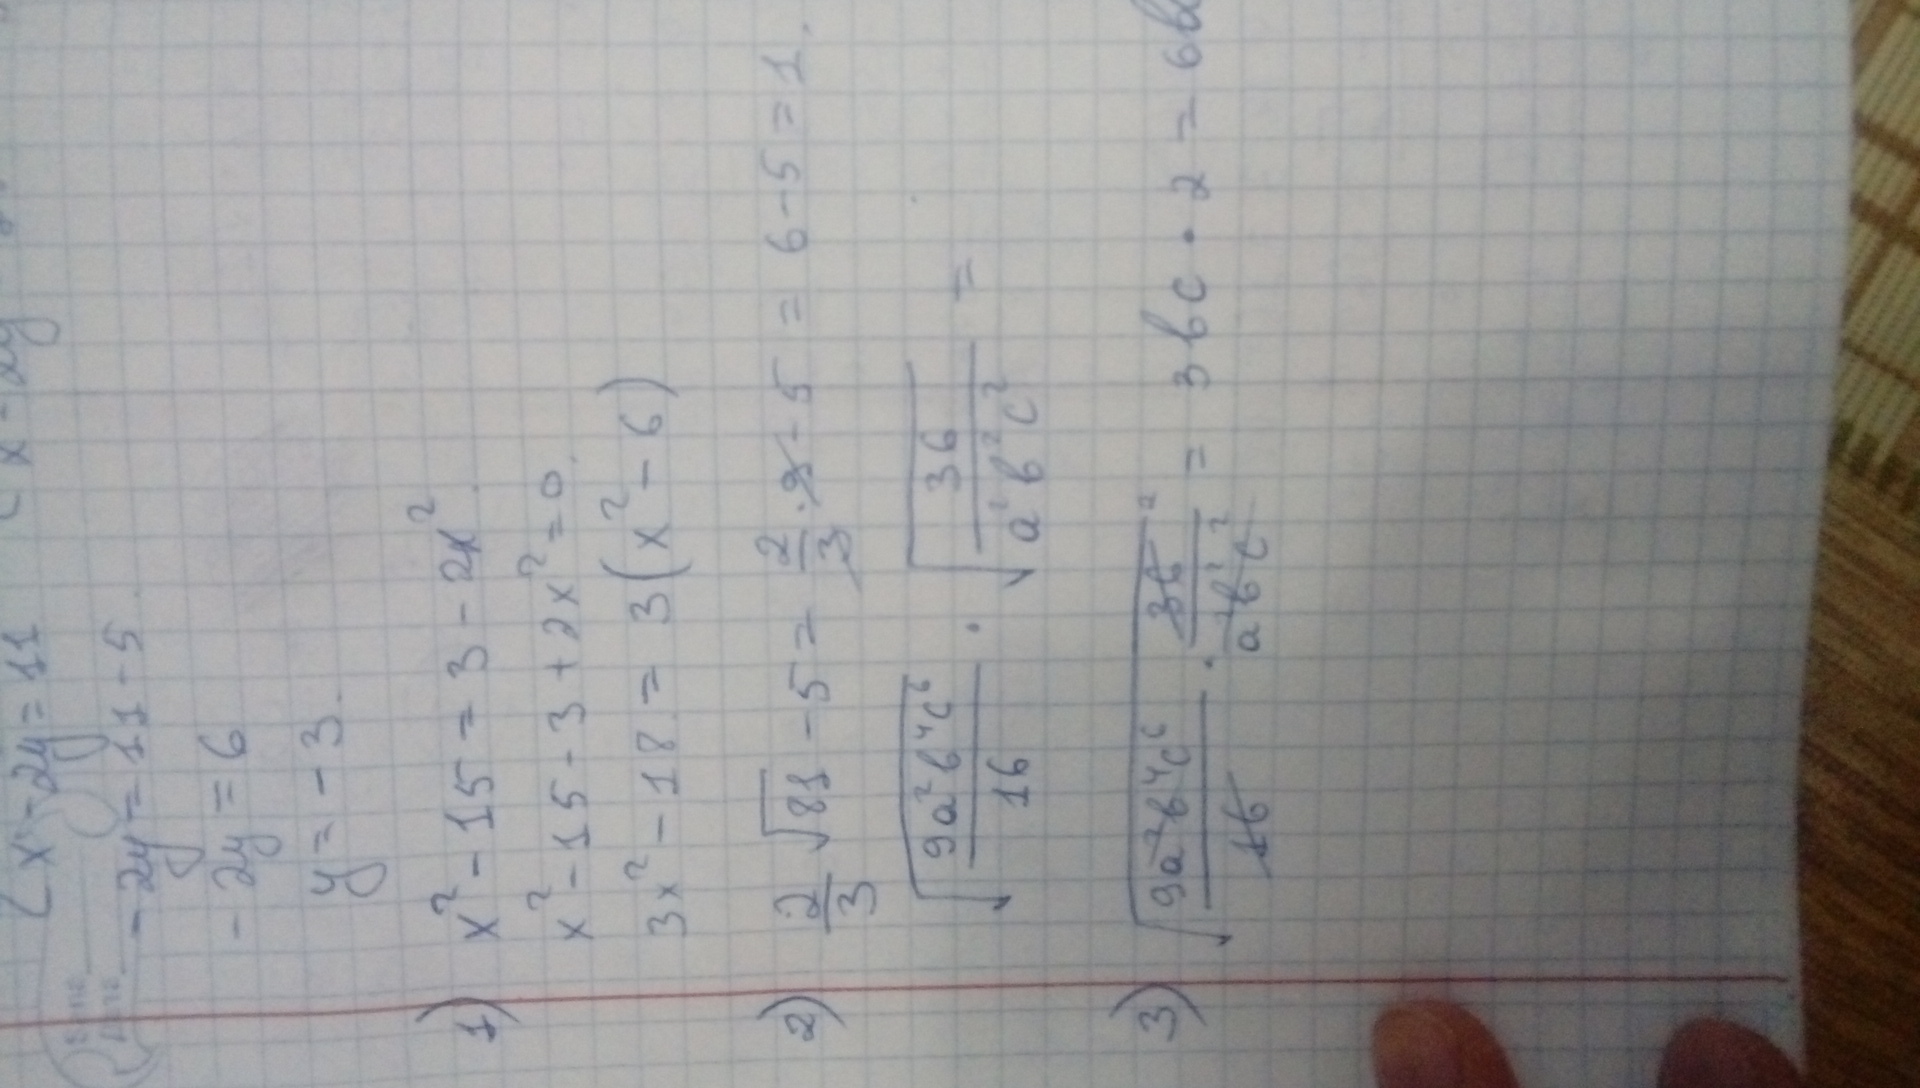 x - 2y = 11
- 2y = 11 - 5
- 2y = 6
y = - 3.
1) x² - 15 = 3 - 2x².
x² - 15 - 3 + 2x² = 0.
3x² - 18 = 3(x² - 6)
2) 2/3 √81 - 5 = 2/3 · 9 - 5 = 6 - 5 = 1.
√(9a²b⁴c⁶/16) · √(36/a²b²c²) =
3) √(9a²b⁴c⁶/16 · 36/a²b²c²) = 3bc · 2 = 6b